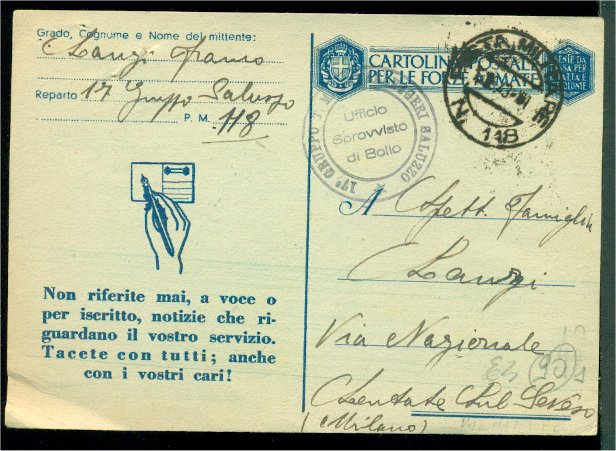 Grado, Cognome e Nome del mittente:
Lanzi Franco
Reparto 17 Gruppo Saluzzo
P. M. 118
Non riferite mai, a voce o
per iscritto, notizie che ri-
guardano il vostro servizio.
Tacete con tutti; anche
con i vostri cari!
CARTOLINA POSTALE
PER LE FORZE ARMATE
POSTA MILITARE
N. 118
17º GRUPPO SALUZZO
Ufficio
Sprovvisto
di Bollo
A Spett. Famiglia
Lanzi
Via Nazionale
Lentate Sul Seveso
(Milano)
90